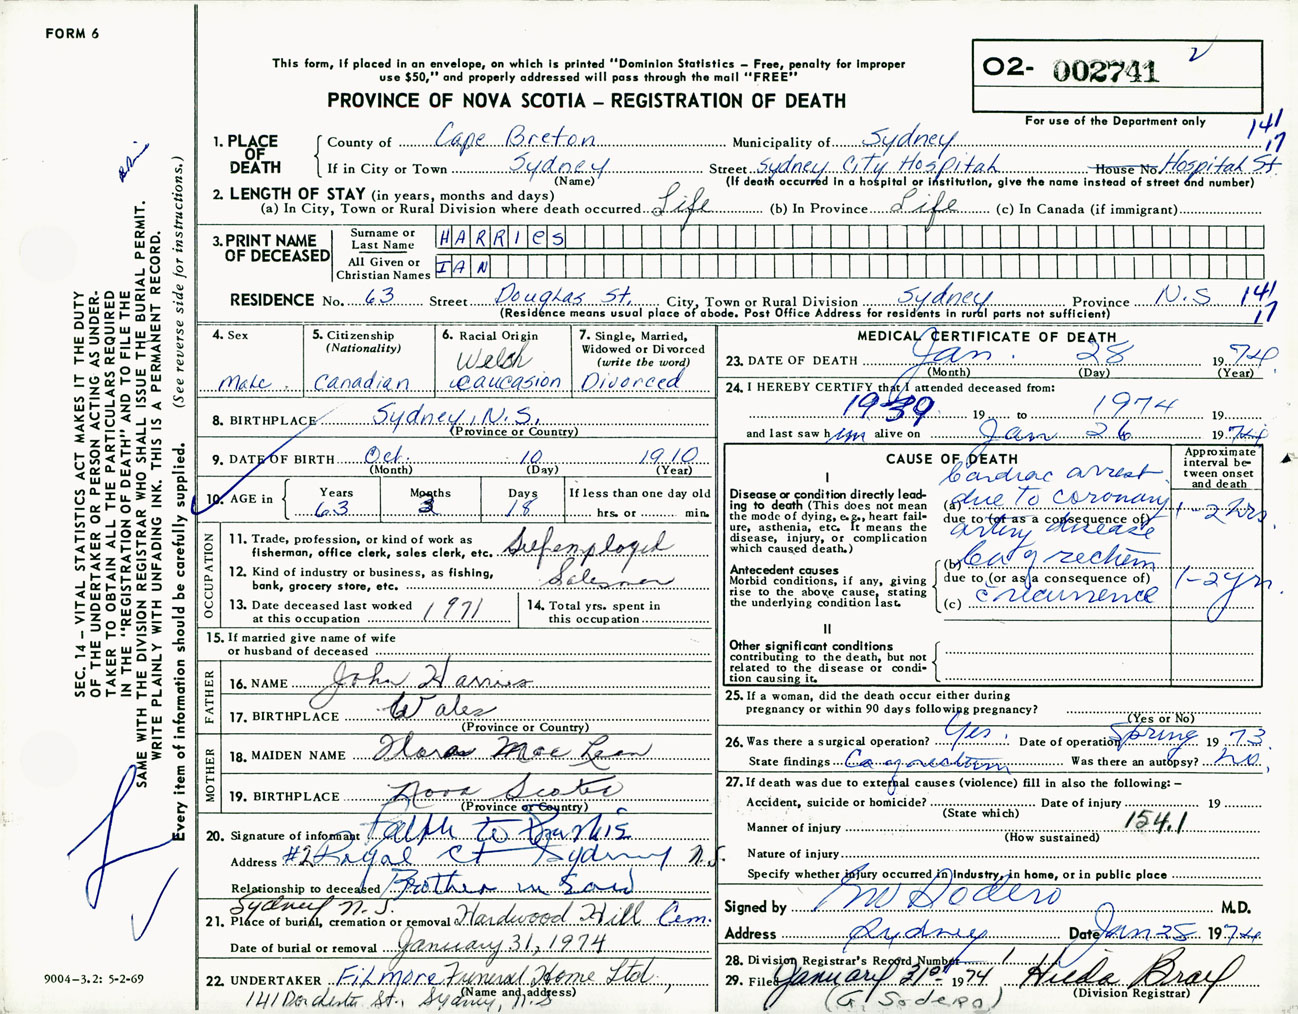 FORM 6
This form, if placed in an envelope, on which is printed "Dominion Statistics – Free, penalty for improper
use $50," and properly addressed will pass through the mail "FREE"
PROVINCE OF NOVA SCOTIA – REGISTRATION OF DEATH
O2- 002741
For use of the Department only
141
17
SEC. 14 – VITAL STATISTICS ACT MAKES IT THE DUTY
OF THE UNDERTAKER OR PERSON ACTING AS UNDER-
TAKER TO OBTAIN ALL THE PARTICULARS REQUIRED
IN THE "REGISTRATION OF DEATH" AND TO FILE THE
SAME WITH THE DIVISION REGISTRAR WHO SHALL ISSUE THE BURIAL PERMIT.
WRITE PLAINLY WITH UNFADING INK. THIS IS A PERMANENT RECORD.
Every item of information should be carefully supplied. (See reverse side for instructions.)
1. PLACE OF DEATH
County of Cape Breton Municipality of Sydney
If in City or Town Sydney Street Sydney City Hospital House No. Hospital St
(Name) (If death occurred in a hospital or institution, give the name instead of street and number)
2. LENGTH OF STAY (in years, months and days)
(a) In City, Town or Rural Division where death occurred Life (b) In Province Life (c) In Canada (if immigrant)
3. PRINT NAME OF DECEASED
Surname or Last Name HARRIES
All Given or Christian Names IAN
RESIDENCE No. 63 Street Douglas St. City, Town or Rural Division Sydney Province N.S 141
17
(Residence means usual place of abode. Post Office Address for residents in rural parts not sufficient)
4. Sex
Male
5. Citizenship
(Nationality)
Canadian
6. Racial Origin
Welsh
Caucasion
7. Single, Married,
Widowed or Divorced
(write the word)
Divorced
8. BIRTHPLACE Sydney, N.S.
(Province or Country)
9. DATE OF BIRTH Oct. 10 1910
(Month) (Day) (Year)
10. AGE in
Years Months Days
63 3 18
If less than one day old
hrs. or min.
OCCUPATION
11. Trade, profession, or kind of work as
fisherman, office clerk, sales clerk, etc. Selfemployed
12. Kind of industry or business, as fishing,
bank, grocery store, etc. Salesman
13. Date deceased last worked
at this occupation 1971
14. Total yrs. spent in
this occupation
15. If married give name of wife
or husband of deceased
FATHER
16. NAME John Harries
17. BIRTHPLACE Wales
(Province or Country)
MOTHER
18. MAIDEN NAME Flora Mac Lean
19. BIRTHPLACE Nova Scotia
(Province or Country)
20. Signature of informant
Address #2 Royal Ct Sydney N.S.
Relationship to deceased Brother in law
Sydney N.S.
21. Place of burial, cremation or removal Hardwood Hill Cem.
Date of burial or removal January 31, 1974
22. UNDERTAKER Filmore Funeral Home Ltd.,
(Name and address)
141 Dorchester St., Sydney, N.S
9004–3.2: 5-2-69
MEDICAL CERTIFICATE OF DEATH
23. DATE OF DEATH Jan. 28 1974
(Month) (Day) (Year)
24. I HEREBY CERTIFY that I attended deceased from:
1939 19 to 1974 19
and last saw him alive on Jan 26 1974
CAUSE OF DEATH
Approximate
interval be-
tween onset
and death
I
Disease or condition directly lead-
ing to death (This does not mean
the mode of dying, e.g., heart fail-
ure, asthenia, etc. It means the
disease, injury, or complication
which caused death.)
Cardiac arrest
(a) due to coronary 1-2 hrs.
due to (or as a consequence of)
artery disease
(b) Ca of rectum
Antecedent causes
Morbid conditions, if any, giving
rise to the above cause, stating
the underlying condition last.
due to (or as a consequence of)
1-2 yr.
(c)
II
Other significant conditions
contributing to the death, but not
related to the disease or condi-
tion causing it.
25. If a woman, did the death occur either during
pregnancy or within 90 days following pregnancy?
(Yes or No)
26. Was there a surgical operation? Yes. Date of operation Spring 1973
State findings Ca of rectum Was there an autopsy? No.
27. If death was due to external causes (violence) fill in also the following: –
Accident, suicide or homicide? Date of injury 19
(State which)
Manner of injury 154.1
(How sustained)
Nature of injury
Specify whether injury occurred in industry, in home, or in public place
Signed by Sodero M.D.
Address Sydney Date Jan 28 1974
28. Division Registrar's Record Number 1
29. Filed January 31st 1974 Hilda Bray
(Division Registrar)
(G Sodero)